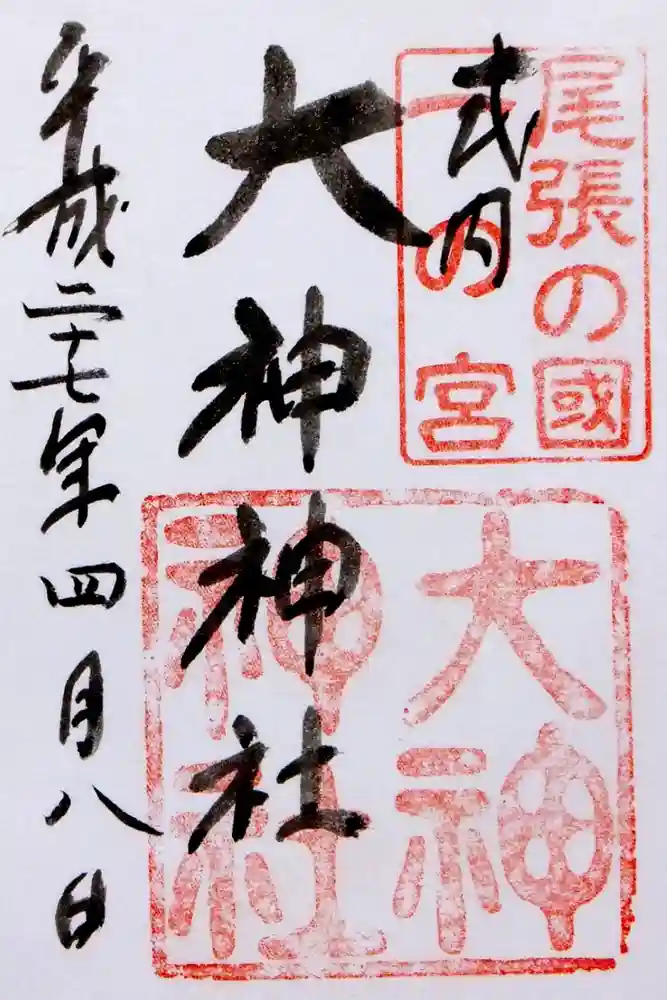 尾張の國
一の宮
式内
大神神社
大神
神社
平成二十七年四月八日